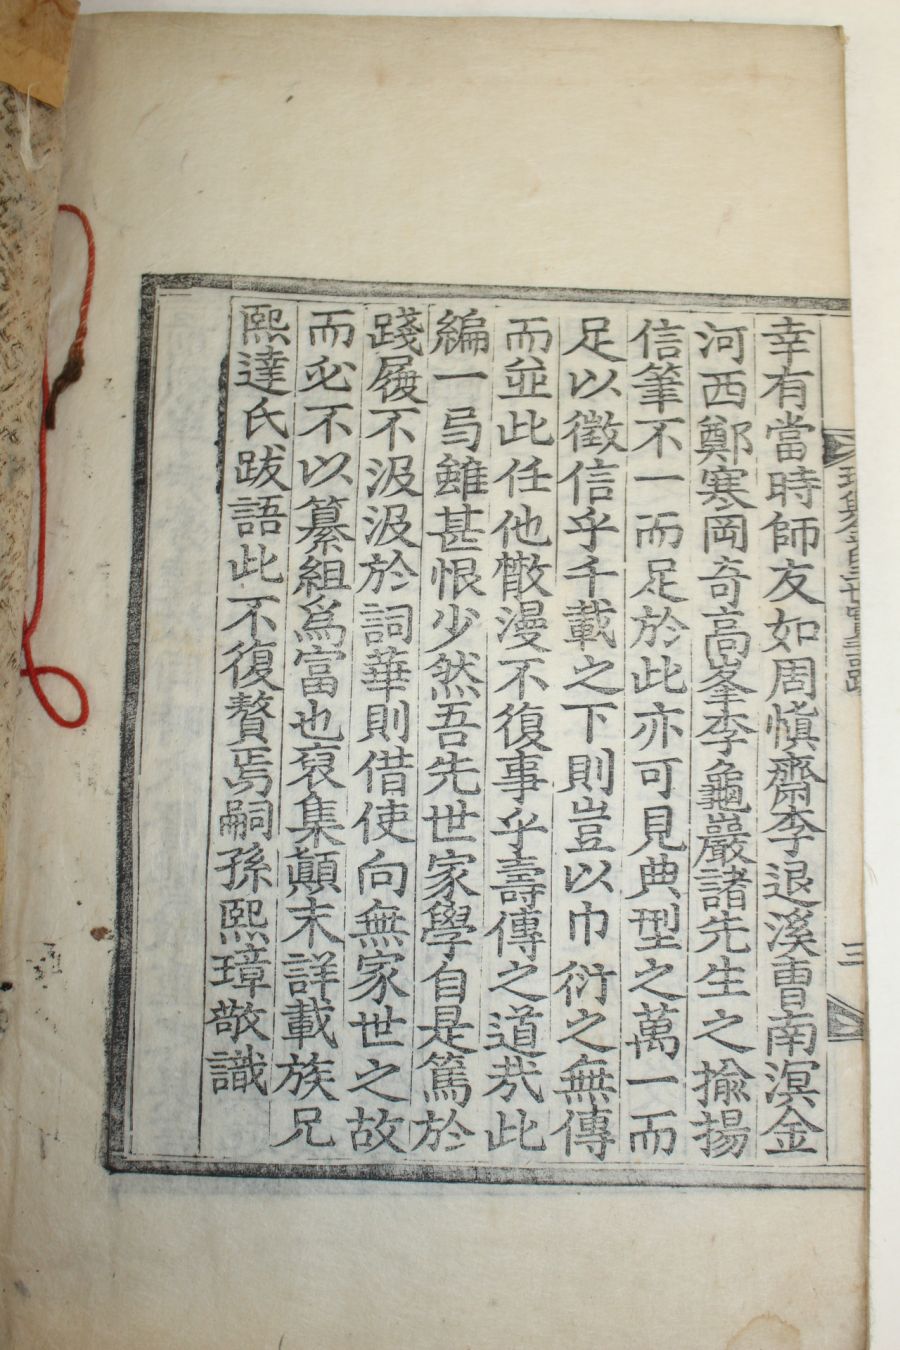 幸有當時師友如周愼齋李退溪曺南溟金
河西鄭寒岡奇高峯李龜巖諸先生之揄揚
信筆不一而足於此亦可見典型之萬一而
足以徵信乎千載之下則豈以巾衍之無傳
而並此任他散漫不復事乎壽傳之道㦲此
編一弓雖甚恨少然吾先世家學自是篤於
踐履不汲汲於詞華則借使向無家世之故
而必不以纂組爲富也裒集顚末詳載族兄
熙達氏跋語此不復贅焉嗣孫熙璋敬識
三